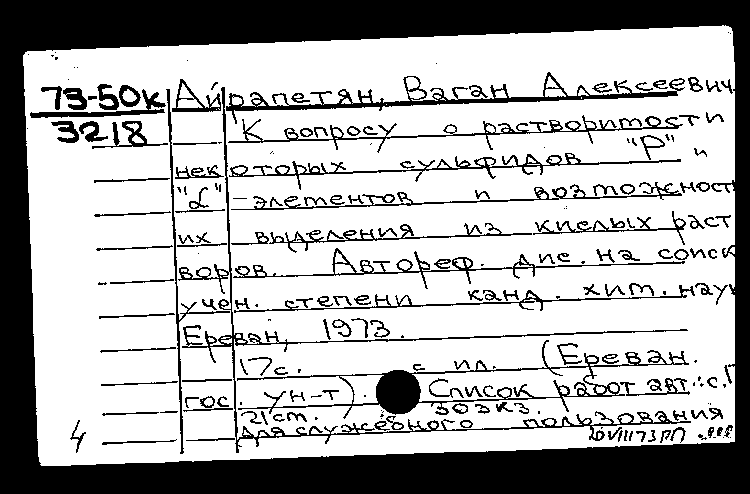 73-50к Айрапетян, Ваган Алексеевич
3218 К вопросу о растворимости
некоторых сульфидов "Р" и
"d" -элементов и возможност
их выделения из кислых раст
воров. Автореф. дис. на соиск
учен. степени канд. хим. наук
Ереван, 1973.
17с. с ил. (Ереван.
гос. ун-т). Список работ авт.: с.
21 ст. 30экз.
Для служебного пользования
4